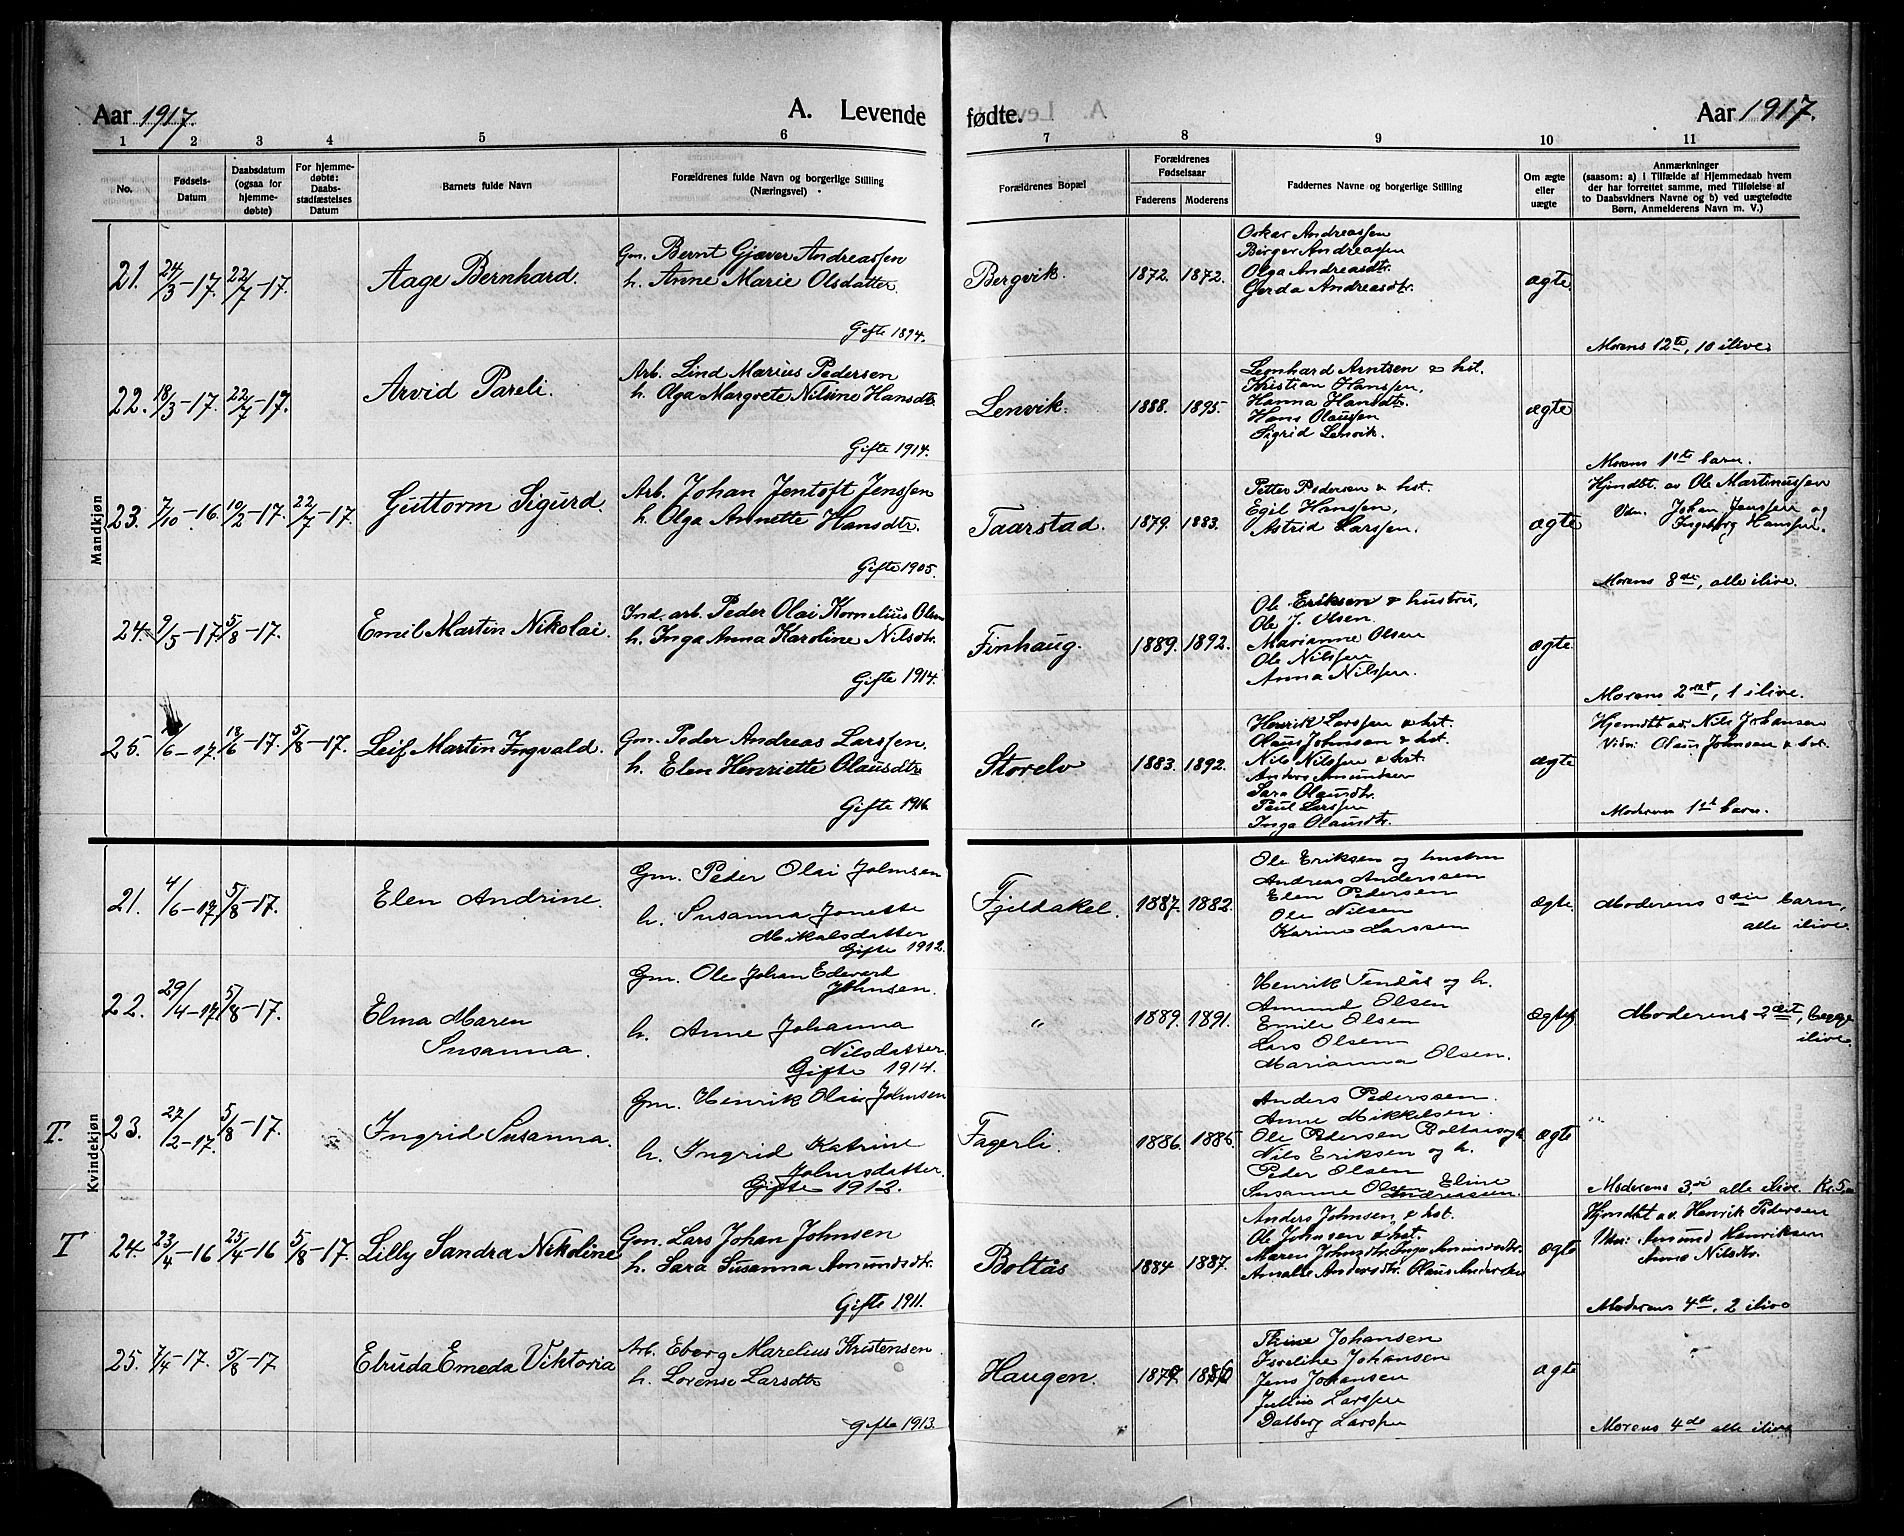 Aar 1917.
A. Levende
fødte.
Aar 1917.
1 2 3 4 5 6 7 8 9 10 11
No.
Fødsels-
Datum
Daabsdatum
(ogsaa for
hjemme-
døbte)
For hjemme-
døbte:
Daabs-
stadfæstelses
Datum
Barnets fulde Navn
Forældrenes fulde Navn og borgerlige Stilling
(Næringsvei)
Forældrenes Bopæl
Forældrenes
Fødselsaar
Faderens Moderens
Faddernes Navne og borgerlige Stilling
Om ægte
eller
uægte
Anmærkninger
(saasom: a) i Tilfælde af Hjemmedaab hvem
der har forrettet samme, med Tilføielse af
to Daabsvidners Navne og b) ved uægtefødte
Børn, Anmelderens Navn m. V.)
Mandkjøn
21. 24/3-17. 22/7-17. Aage Bernhard.
Gm. Bernt Gjæver Andreassen
h. Anne Marie Olsdatter
Gifte 1894.
Bergvik. 1872. 1872.
Oskar Andreassen
Birger Andreassen
Olga Andreasdtr.
Gerda Andreasdtr.
ægte
Morens 12te, 10 ilive
22. 18/3-17. 22/7-17. Arvid Pareli.
Arb. Lind Marius Pedersen
h. Olga Margrete Niline Hansdtr
Gifte 1914.
Lenvik. 1888. 1895.
Leonhard Arntsen & hst.
Kristian Hanssen,
Hanna Hansdtr.
Hans Olaussen
Sigrid Lenvik.
ægte
Morens 1ste barn.
23. 7/10-16. 10/2-17. 22/7-17. Guttorm Sigurd.
Arb. Johan Jentoft Jenssen
h. Olga Annette Hansdtr.
Gifte 1905.
Taarstad. 1879. 1883.
Petter Pedersen & hst.
Egil Hanssen,
Astrid Larssen.
ægte
Hjmdbt. av Ole Martinussen
Vdn. Johan Jenssen og
Ingeborg Hanssen.
Morens 8de, alle ilive.
24. 9/5-17 5/8-17. Emil Martin Nikolai.
Ind. arb. Peder Olai Kornelius Olsen
h. Inga Anna Karoline Nilsdtr.
Gifte 1914.
Finhaug. 1889. 1892.
Ole Eriksen & hustru,
Ole J. Olsen.
Marianne Olsen
Ole Nilssen
Anna Nilssen.
ægte
Morens 2net, 1 ilive.
25. /6-17. 18/6-17. 5/8-17. Leif Martin Ingvald.
Gm. Peder Andreas Larssen.
h. Elen Henriette Olausdtr
Gifte 1916.
Storelv 1883. 1892.
Henrik Larssen & hst.
Olaus Johnsen & hst.
Nils Nilssen & hst.
Anders Amundsen
Sara Olausdtr.
Paul Larssen
Inga Olausdtr.
ægte
Hjemdbt av. Nils Johansen
Vidn: Olaus Johnsen & hst.
Moderens 1ste barn.
Kvindekjøn
21. 4/6-17 5/8-17. Elen Andrine.
Gm. Peder Olai Johnsen
h. Susanna Jonette
Mikalsdatter
Gifte 1912.
Fjeldakel. 1887. 1882.
Ole Eriksen og hustru
Andreas Anderssen
Elen Pedersen
Ole Nilsen
Karine Larssen
ægte.
Moderens barn,
alle ilive.
22. 29/4-17 5/8-17. Elma Maren
Susanna.
Gm. Ole Johan Edevart
Johnsen.
h. Anne Johanna
Nilsdatter.
Gifte 1914.
" 1889. 1891.
Henrik Tendås og h.
Amund Olsen
Emilie Olsen
Lars Olsen
Marianna Olsen.
ægte
Moderens 2det, begge
ilive.
T. 23. 27/2-17. 5/8-17. Ingrid Susanna.
Gm. Henrik Olai Johnsen
h. Ingrid Katrine
Johnsdatter.
Gifte 1912.
Fagerli. 1886. 1885
Anders Pederssen.
Anne Mikkelsen.
Ole Pedersen Boltaas og h.
Nils Eriksen og h.
Peder Olsen
Susanne Olsen Eline
Andreassen.
ægte
Moderens 3., alle ilive. Kr. 5,-
T 24. 23/4-16 25/4-16 5/8-17. Lilly Sandra Nikoline
Gm. Lars Johan Johnsen
h. Sara Susanna Amundsdtr.
Gifte 1911.
Boltås 1884 1887.
Anders Johnsen & hst.
Ole Johnsen & hst.
Maren Johnsdtr. Inga Amundsdtr.
Amalie Andersdtr. Olaus Andersen
ægte
Hjemdbt av. Henrik Pedersen
Vidn: Amund Henriksen
Anne Nilsdtr.
Moderens 4de, 2 ilive
25. 7/4-17. 5/8-17 Elruda Emeda Viktoria
Arb. Eberg Marelius Kristensen.
h. Lorense Larsdtr
Gifte 1913.
Haugen. 1879
Trine Johansen
Iverine Johansen
Jens Johansen
Julius Larssen
Dalberg Larssen
ægte
Morens 4de alle ilive